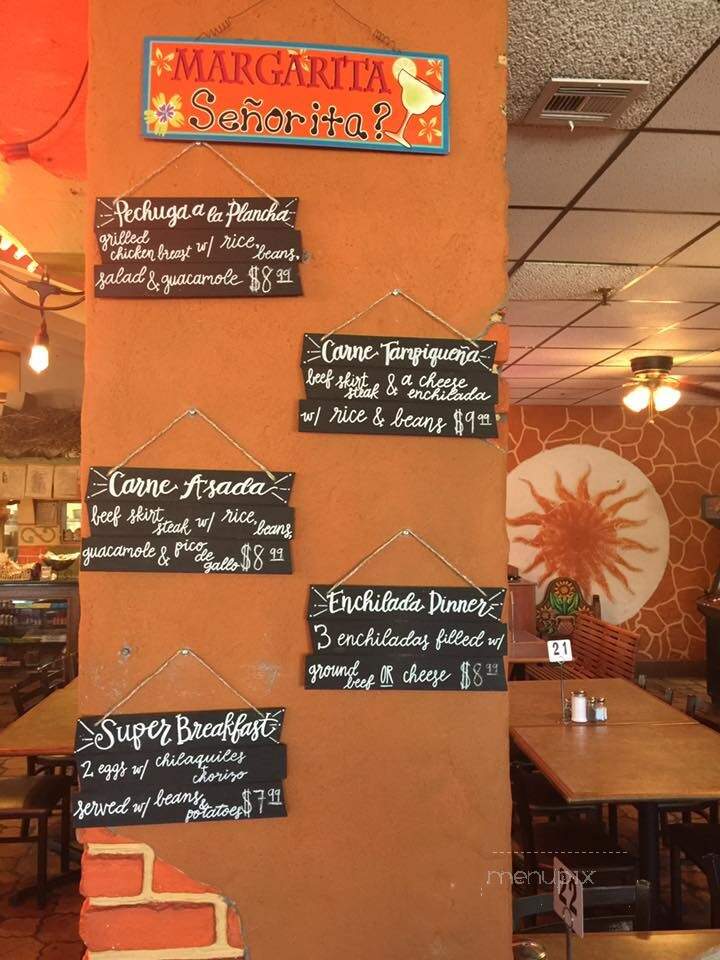 MARGARITA
Señorita?
Pechuga a la Plancha
grilled chicken breast w/ rice, beans,
salad & guacamole $8 99
Carne Tampiqueña
beef skirt steak & a cheese enchilada
w/ rice & beans $9 99
Carne Asada
beef skirt steak w/ rice, beans,
guacamole & pico de gallo $8 99
Enchilada Dinner
3 enchiladas filled w/
ground beef OR cheese $8 99
Super Breakfast
2 eggs w/ chilaquiles chorizo
served w/ beans & potatoes $7 99
21
22
menupix